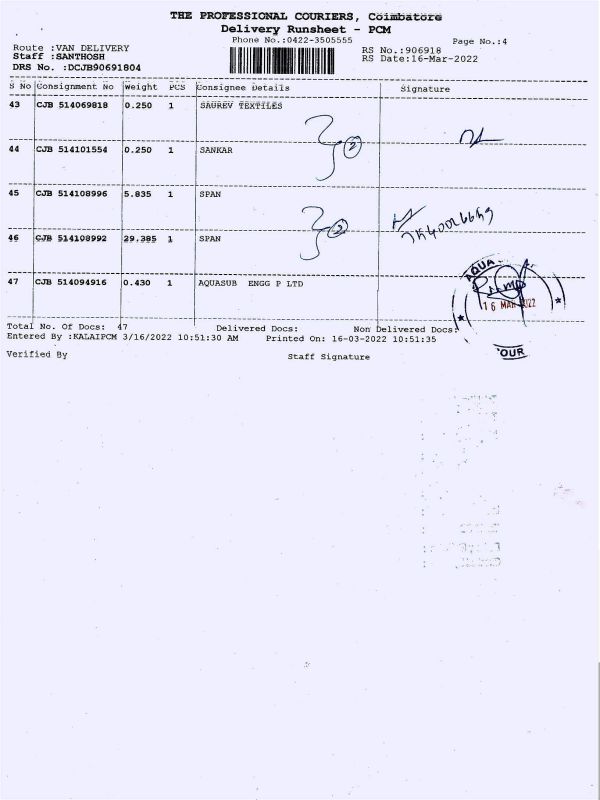 THE PROFESSIONAL COURIERS, Coimbatore
Delivery Runsheet - PCM
Phone No.:0422-3505555
Page No.:4
Route :VAN DELIVERY
Staff :SANTHOSH
DRS No. :DCJB90691804
RS No.:906918
RS Date:16-Mar-2022
S No Consignment No Weight PCS Consignee Details Signature
43 CJB 514069818 0.250 1 SAUREV TEXTILES
44 CJB 514101554 0.250 1 SANKAR
45 CJB 514108996 5.835 1 SPAN
46 CJB 514108992 29.385 1 SPAN
47 CJB 514094916 0.430 1 AQUASUB ENGG P LTD
AQUA
16 MAR 2022
OUR
Total No. Of Docs: 47 Delivered Docs: Non Delivered Docs:
Entered By :KALAIPCM 3/16/2022 10:51:30 AM Printed On: 16-03-2022 10:51:35
Verified By Staff Signature